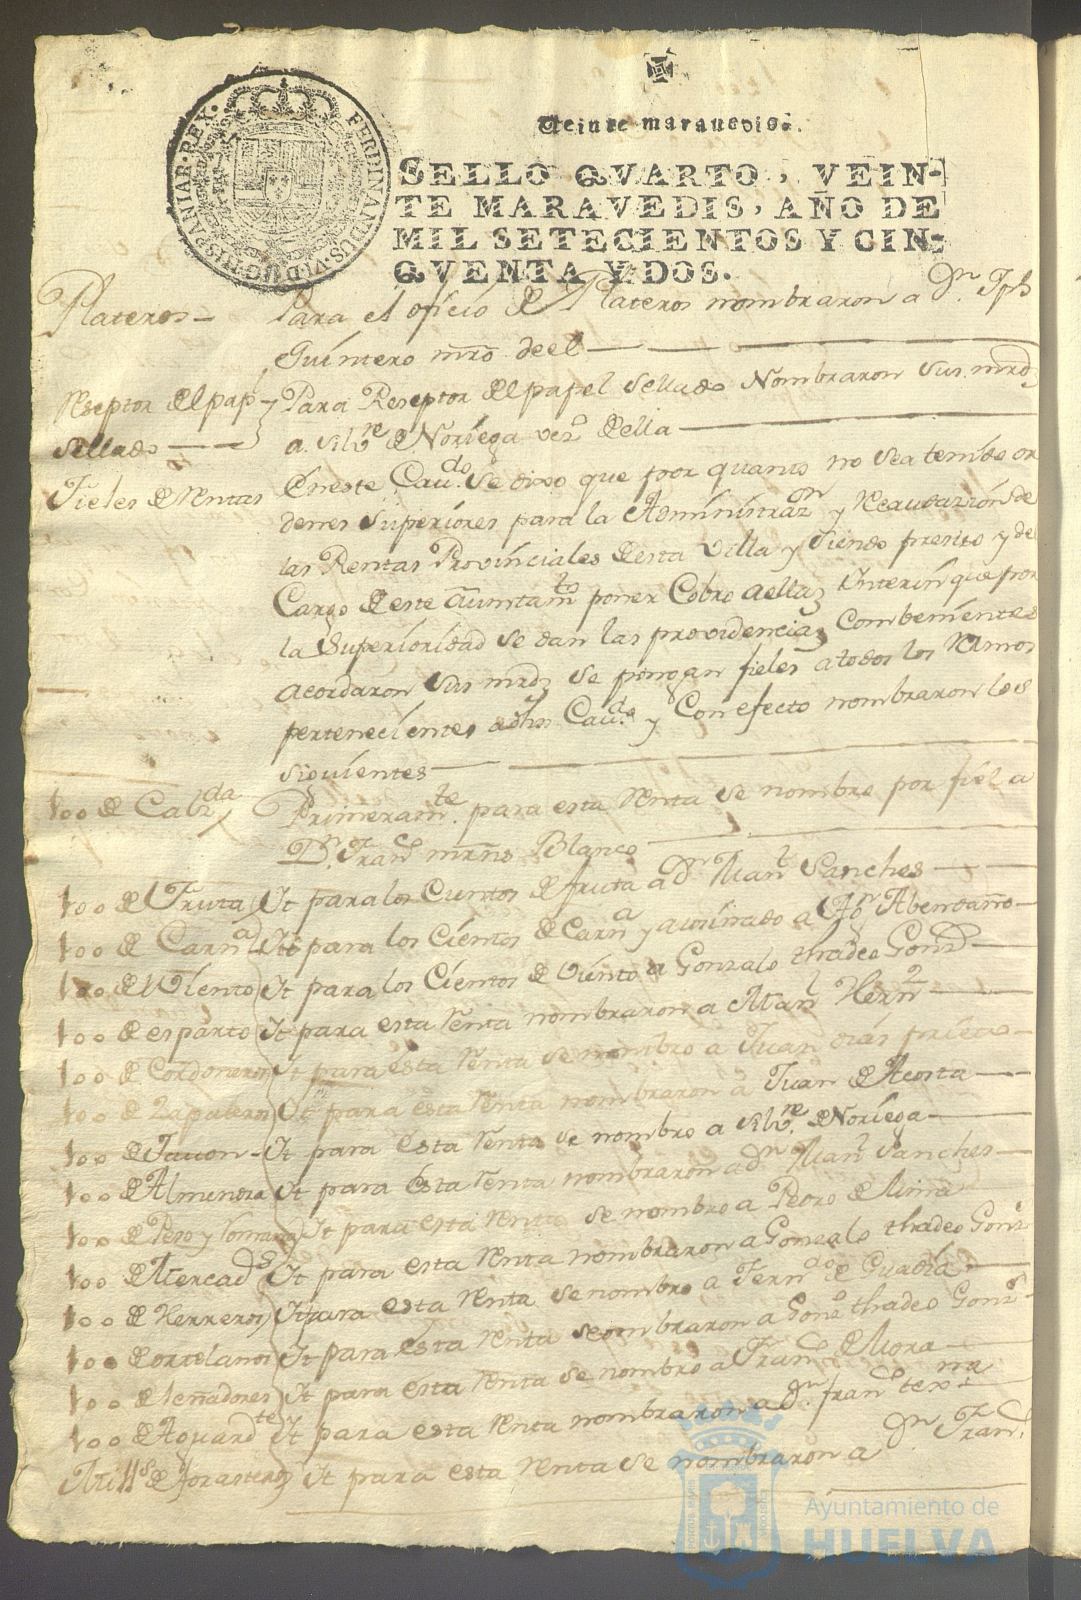 Veinte maravedis.
SELLO QVARTO, VEIN-
TE MARAVEDIS, AÑO DE
MIL SETECIENTOS Y CIN-
QVENTA Y DOS.
FERDINANDUS.VI.D.G.HISPANIAR.REX.
Plateros— Para el oficio de Plateros nombraron a Dn. Jph
Quintero mro. de el
Reseptor del pap. Para Reseptor del papel Sellado Nombraron Sus mrds
Sellado a Silve. de Noriega vezo. de ella
Fieles de Rentas En este Cavdo. Se dixo que por quanto no Sea tenido or
denes Superiores para la Administrazn. y Recaudazión de
las Rentas Provinciales de esta Villa y Siendo presiso y de
Cargo de este Aiuntamto. poner Cobro a ellas interin que por
la Superioridad Se dan las providencias Combenientes
acordaron Sus mrds Se pongan fieles a todos los Ramos
pertenecientes a dho Cavdo. y Con efecto nombraron los
Siguientes
100 de Primeramte. para esta Renta Se nombro por fiel a
Dn. Franco. Blanco
100 de Fruta It para los Cientos de fruta a Dn. Manl. Sanches
100 de Carna. It para los Cientos de Carna. y a Abendaño
100 del Viento It para los Cientos de Viento a Gonzalo thadeo Gonz.
100 de esparto It para esta Renta nombraron a Manl. Hern.
100 de Cordoneros It para esta Renta Se nombro a Juan dias
100 de Zapateros It para esta Renta nombraron a Juan de Acosta
100 de Javon It para esta Renta Se nombro a Silve. de Noriega
100 de Almendra It para esta Renta nombraron a Dn. Manl. Sanches
100 de Peso y Romana It para esta Renta Se nombro a Pedro de
100 de Mercads. It para esta Renta nombraron a Gonzalo thadeo Gonz.
100 de Herreros It para esta Renta Se nombro a Ferndo. de Guadía
100 de ortelanos It para esta Renta nombraron a Gonzo. thadeo Gonz.
100 de leñadores It para esta Renta Se nombro a Franco. de Mora
100 de Aguardte. It para esta Renta nombraron a Dn. Franco.
de forasteros It para esta Renta Se nombraron a Dn. Franco.
Ayuntamiento de
HUELVA